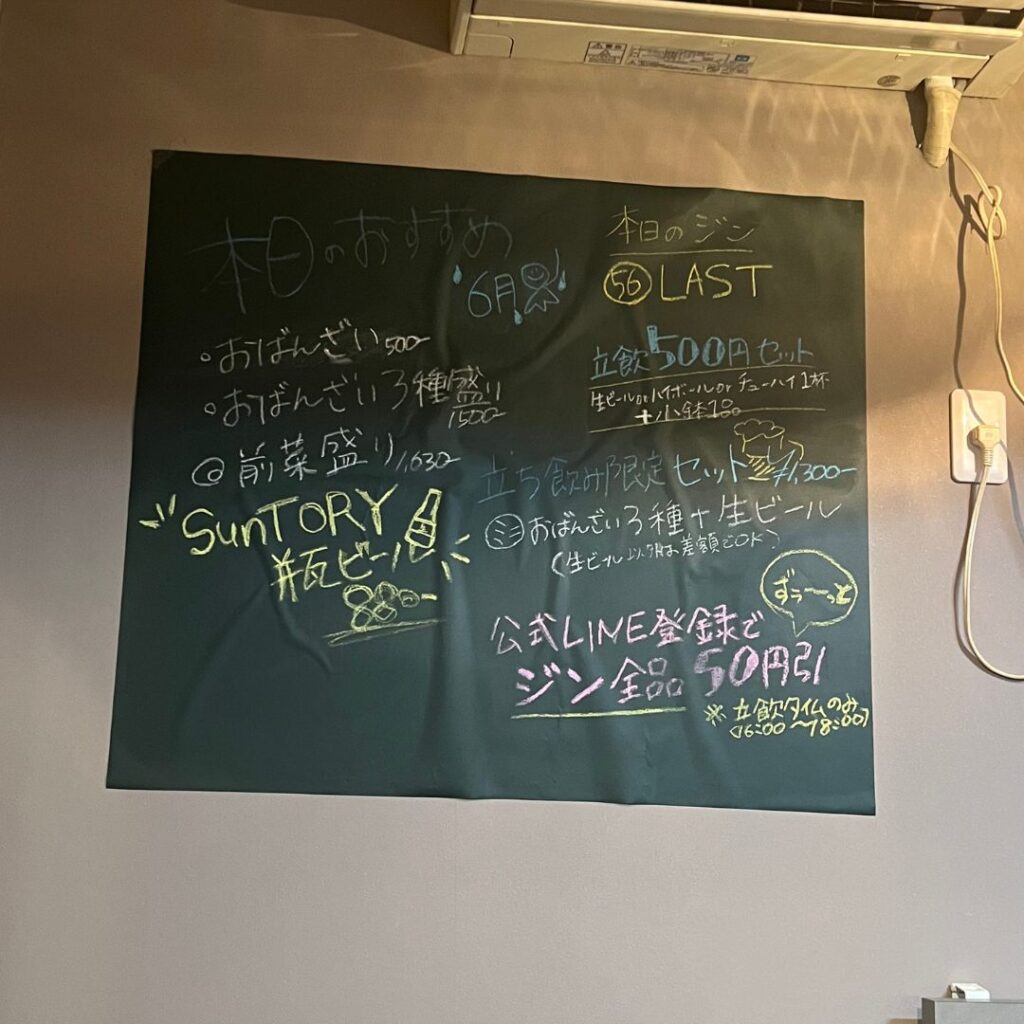 本日のおすすめ
6月
・おばんざい 500-
・おばんざい3種盛り
1500-
前菜盛り 1,630-
SunTORY
瓶ビール
880-
本日のジン
56 LAST
立飲500円セット
生ビールorハイボールorチューハイ1杯
+小鉢1品
立ち飲み限定セット ¥1,300-
ミニおばんざい3種+生ビール
(生ビール以外は差額でOK)
ずぅーっと
公式LINE登録で
ジン全品50円引
※立飲タイムのみ
(16:00〜18:00)